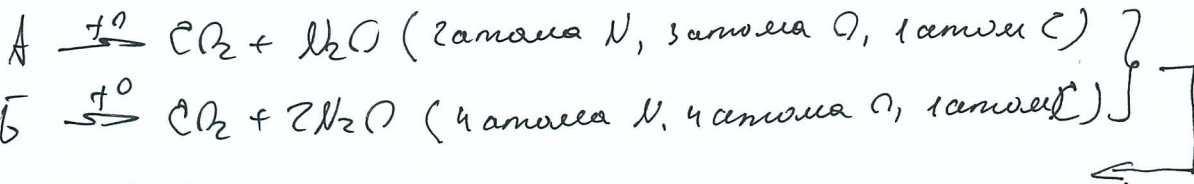 А +O→ CO₂ + N₂O (2 атома N, 3 атома O, 1 атом C)
Б +O→ CO₂ + 2N₂O (4 атома N, 4 атома O, 1 атом C)